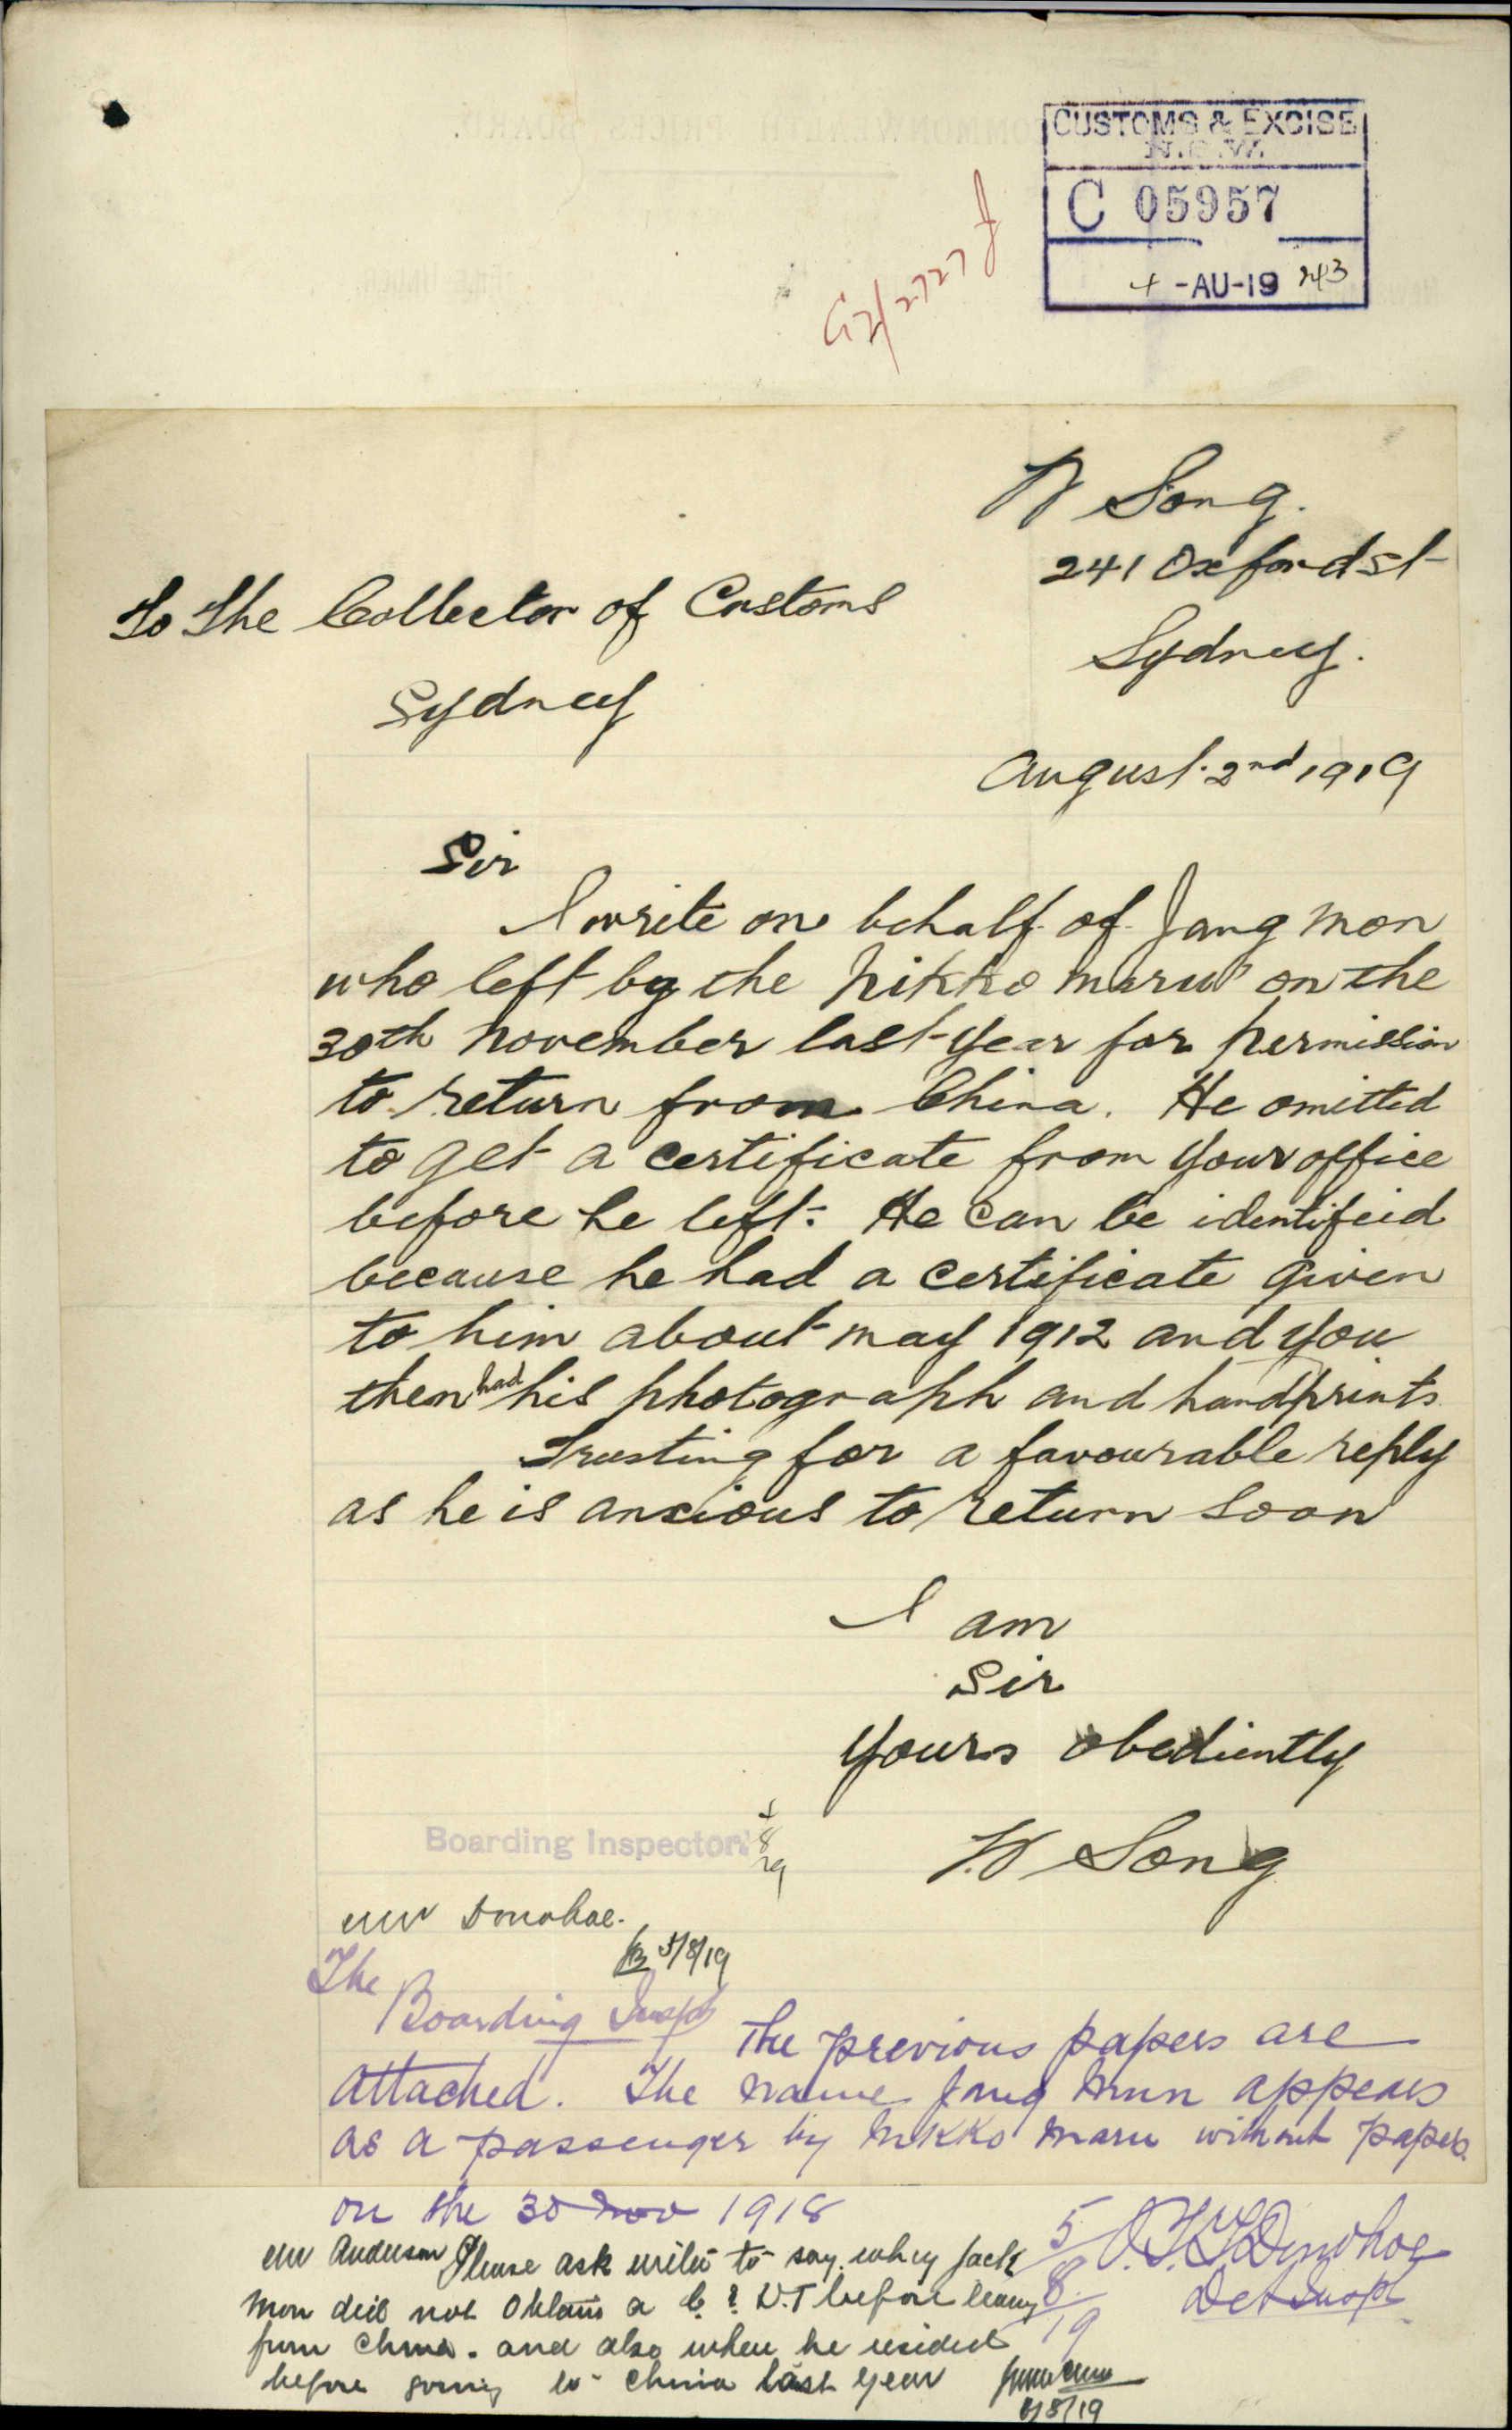 CUSTOMS & EXCISE
N.S.W.
C 05957
4 -AU-19 243
W Song.
241 Oxford st
Sydney.
To The Collector of Customs
Sydney
August. 2nd 1919
Sir
I write on behalf of Jang Mon
who left by the Nikko Maru on the
30th November last year for permission
to return from China. He omitted
to get a certificate from your office
before he left. He can be identifeid
because he had a certificate given
to him about may 1912 and you
then had his photograph and handprints
Trusting for a favourable reply
as he is anxious to return soon
I am
Sir
Yours obediently
W Song
Boarding Inspector.
4/8/19
Mr Donohoe.
5/8/19
The
Boarding Inspr
The previous papers are
attached. The name Jang Mun appears
as a passenger by Nikko Maru without papers
on the 30 Nov 1918
5/8/19
Donohoe
Det Inspr
Mr Anderson Please ask writer to say why Jack
Mon did not obtain a C. E. D.T before leaving
for China. and also where he resided
before going to China last year
8/19